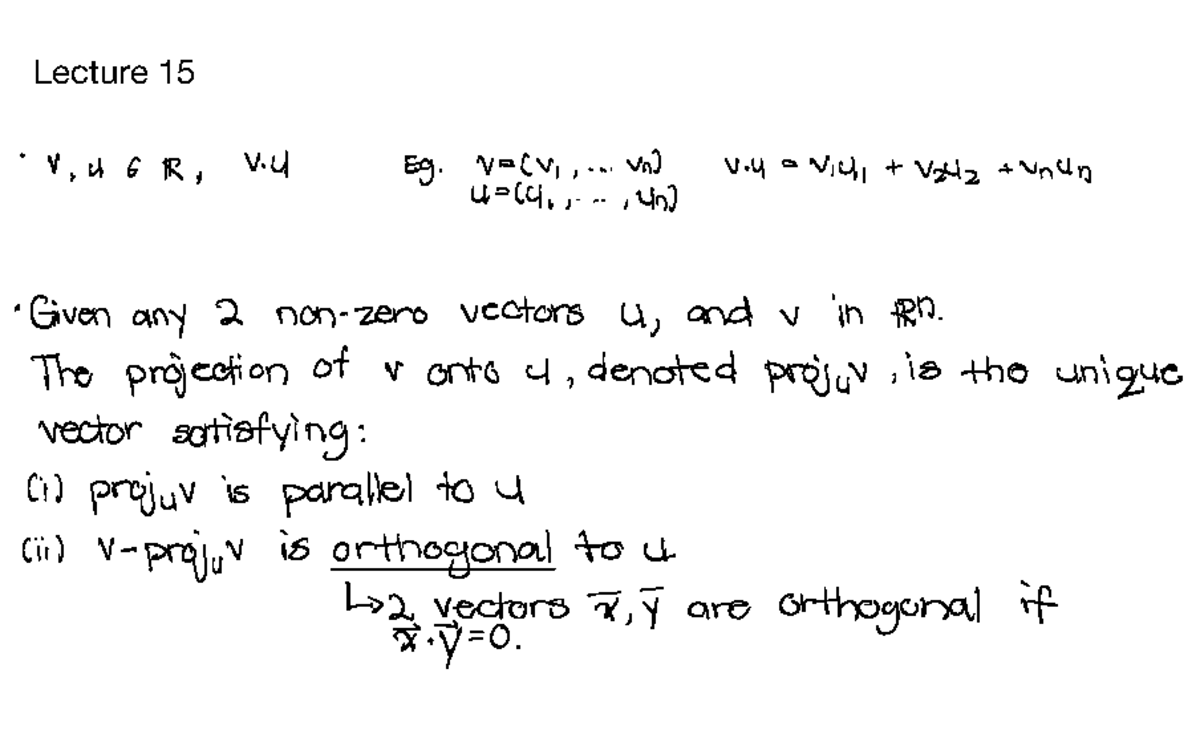 Lecture 15
· v, u ∈ ℝ, v·u Eg. v=(v₁, ... vₙ) v·u = v₁u₁ + v₂u₂ + vₙuₙ
u=(u₁, ..., uₙ)
· Given any 2 non-zero vectors u, and v in ℝⁿ.
The projection of v onto u, denoted projᵤv, is the unique
vector satisfying:
(i) projᵤv is parallel to u
(ii) v-projᵤv is orthogonal to u
↳2 vectors x̄, ȳ are orthogonal if
x⃗·y⃗=0.